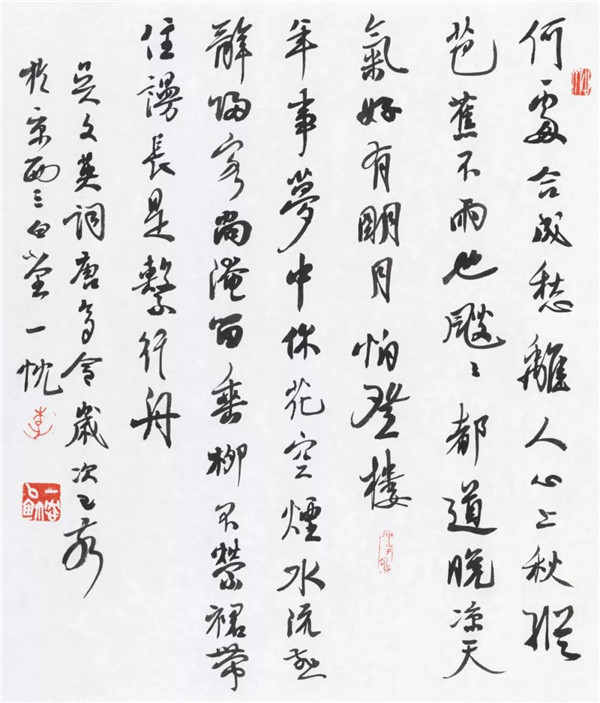 何處合成愁離人心上秋縱
芭蕉不雨也颼〻都道晚涼天
氣好有明月怕登樓
年事夢中休花空煙水流燕
辭歸客尚淹留垂柳不縈裙帶
住謾長是繫行舟
吳文英詞唐多令歲次
於京西三白堂一忱
李